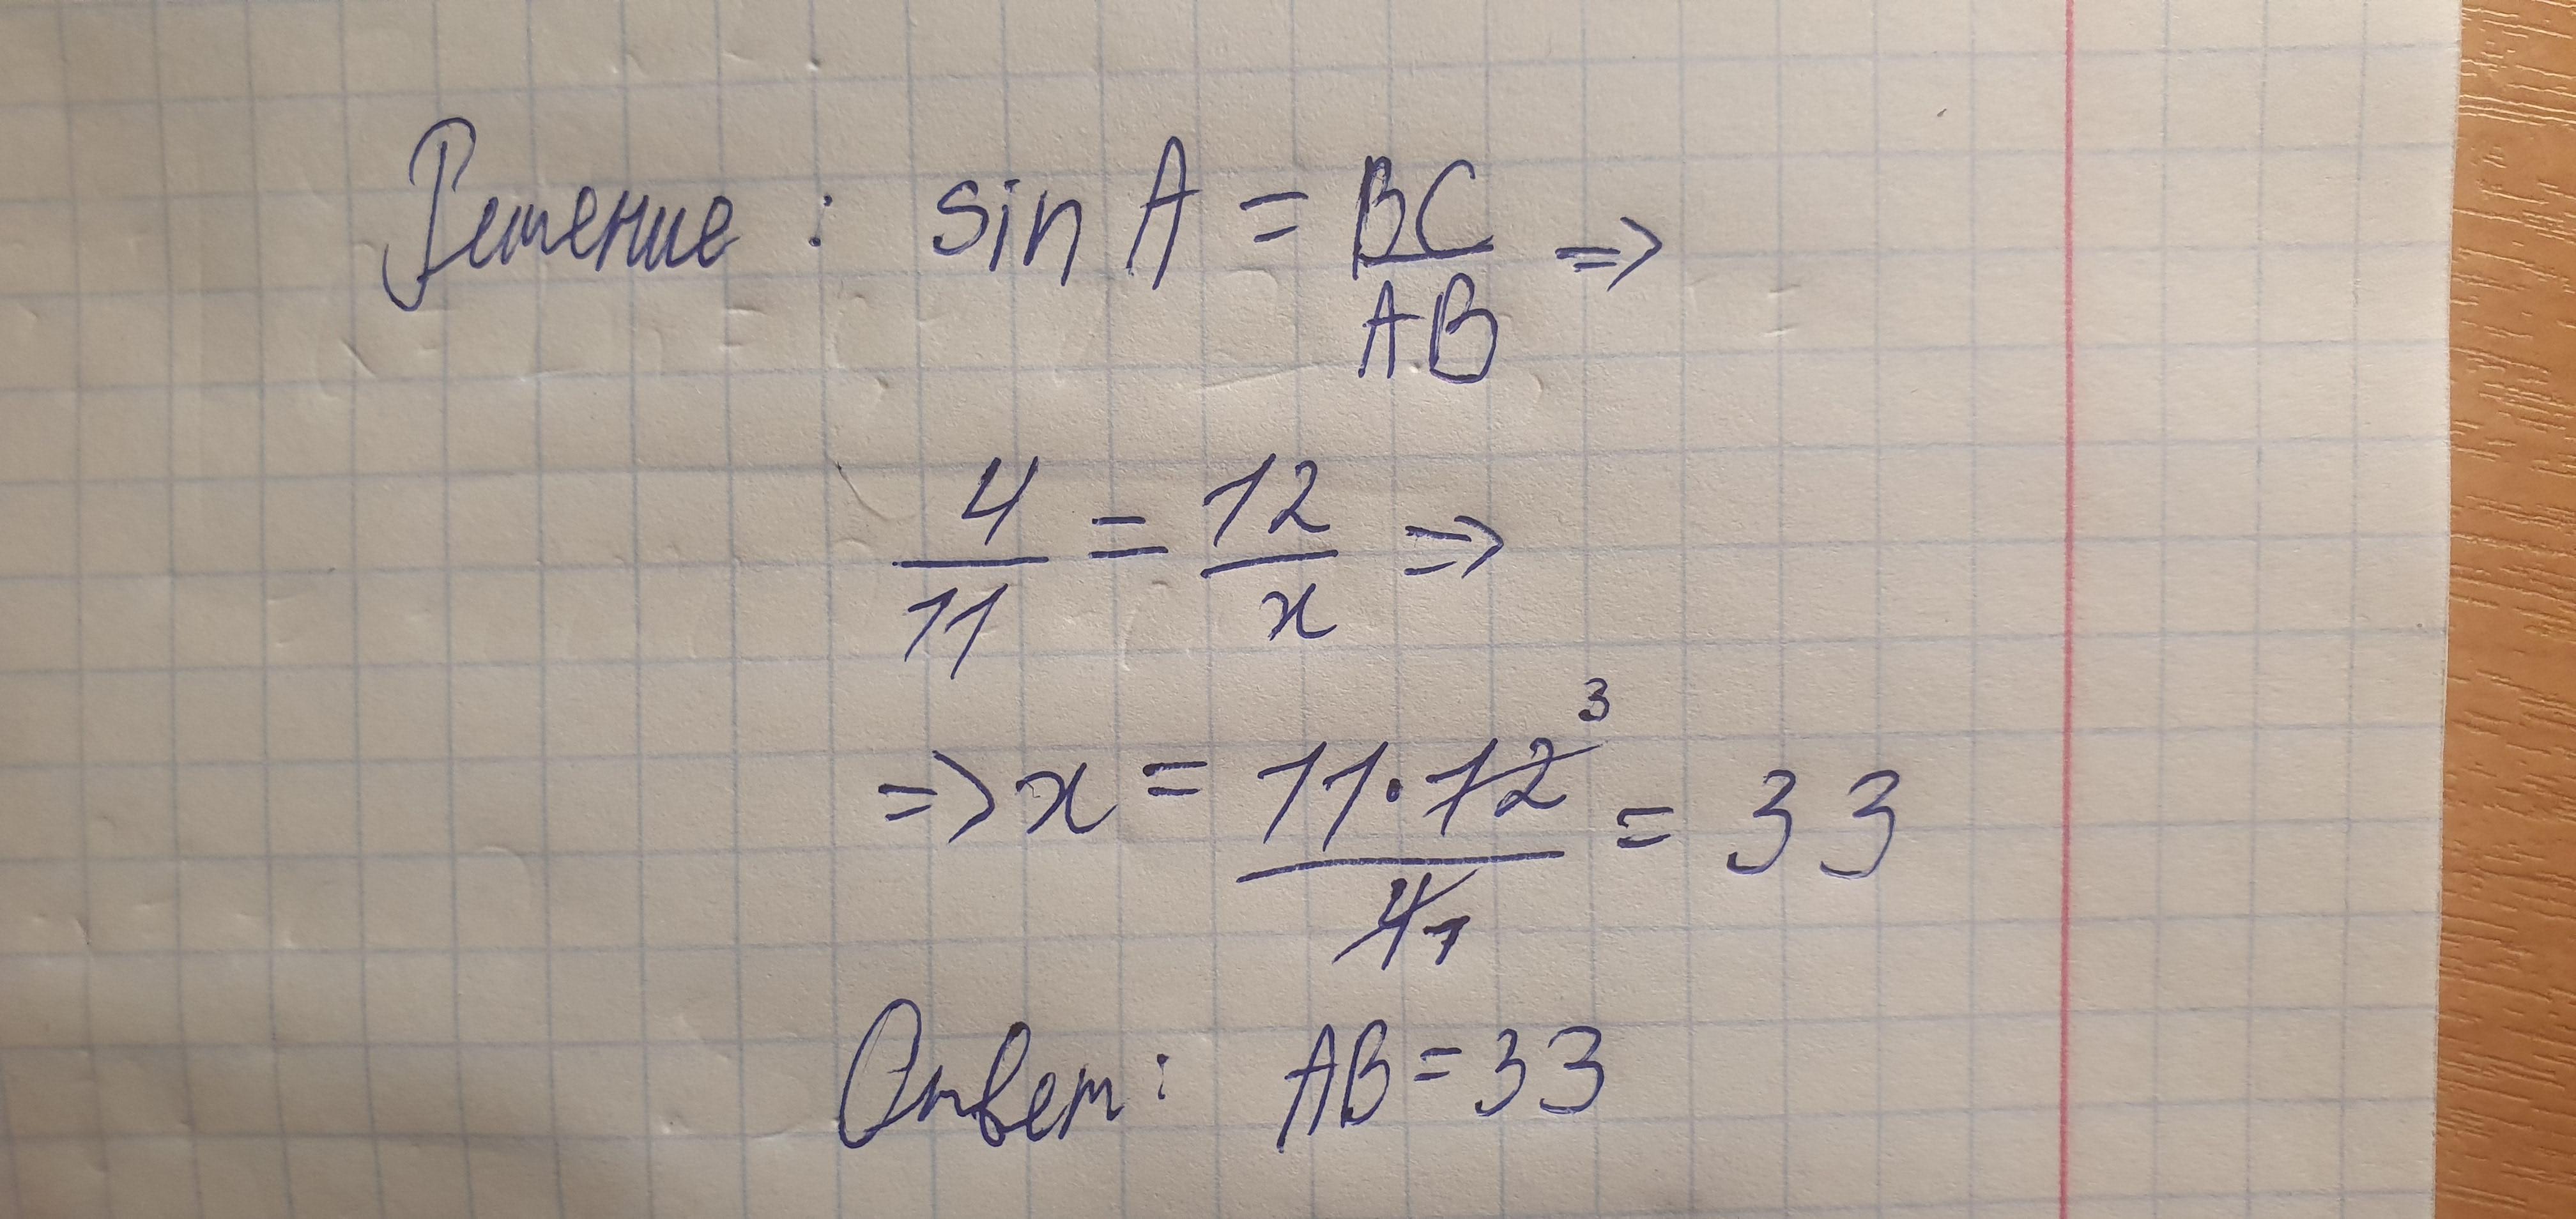 Решение: sin A = BC/AB ⇒
4/11 = 12/x ⇒
⇒ x = 11·12³/4₁ = 33
Ответ: AB = 33